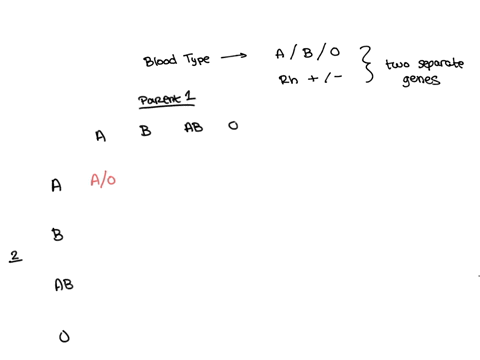 Blood Type → A / B / O
Rh + / -
two separate
genes
Parent 1
A B AB O
A A/O
B
2
AB
O